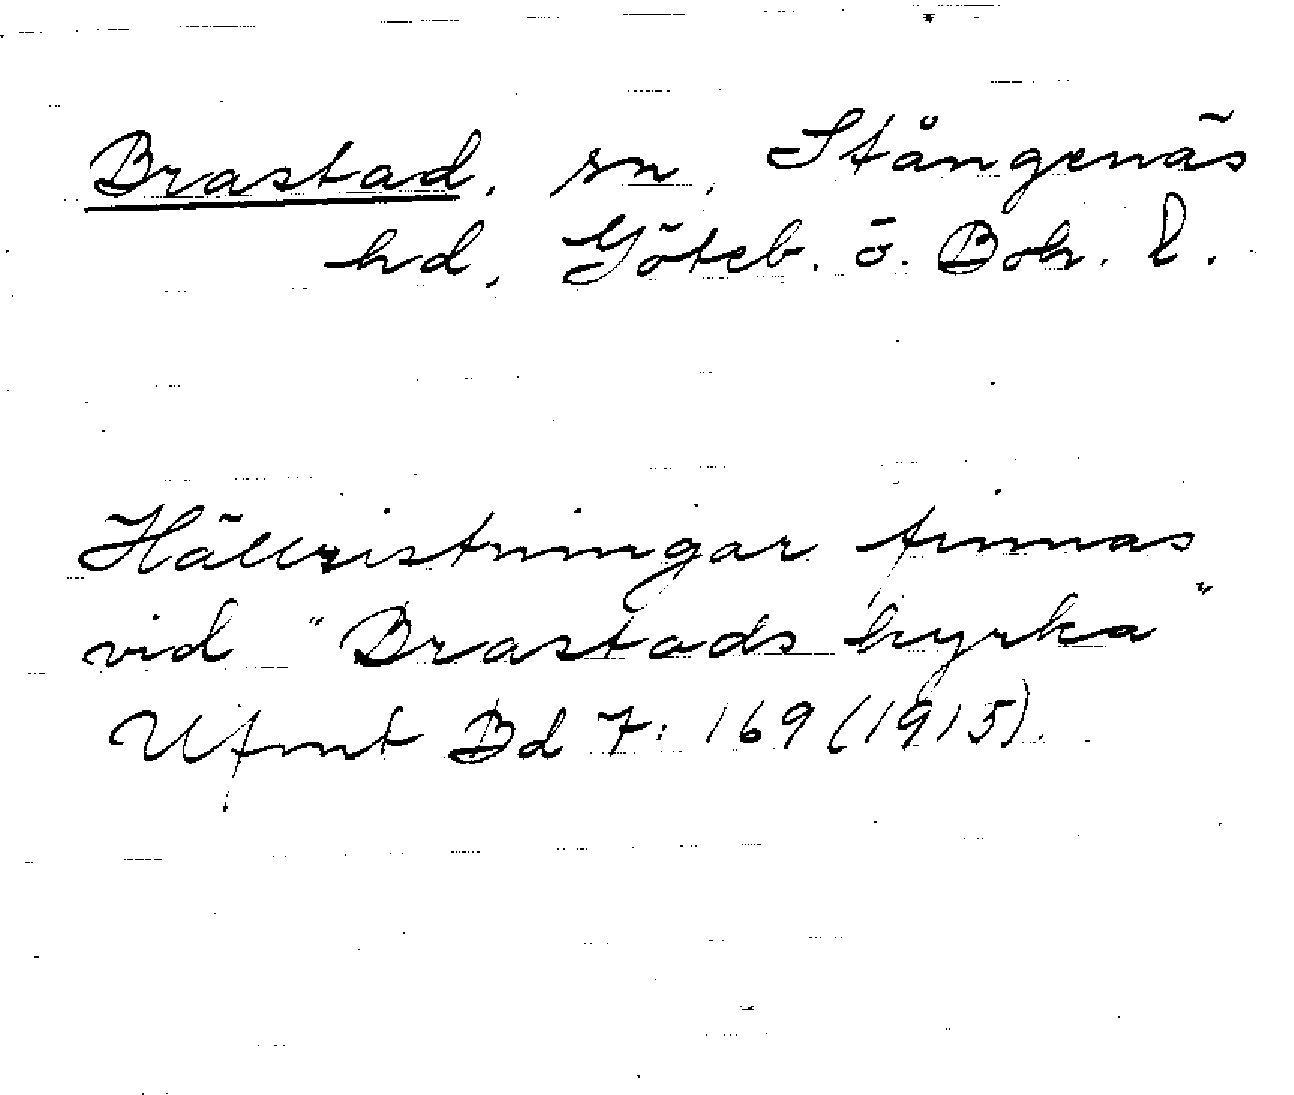 Brastad, sn, Stångenäs
hd, Göteb. o. Boh. l.
Hällristningar finnas
vid "Brastads kyrka"
Ufmt Bd 7: 169 (1915).